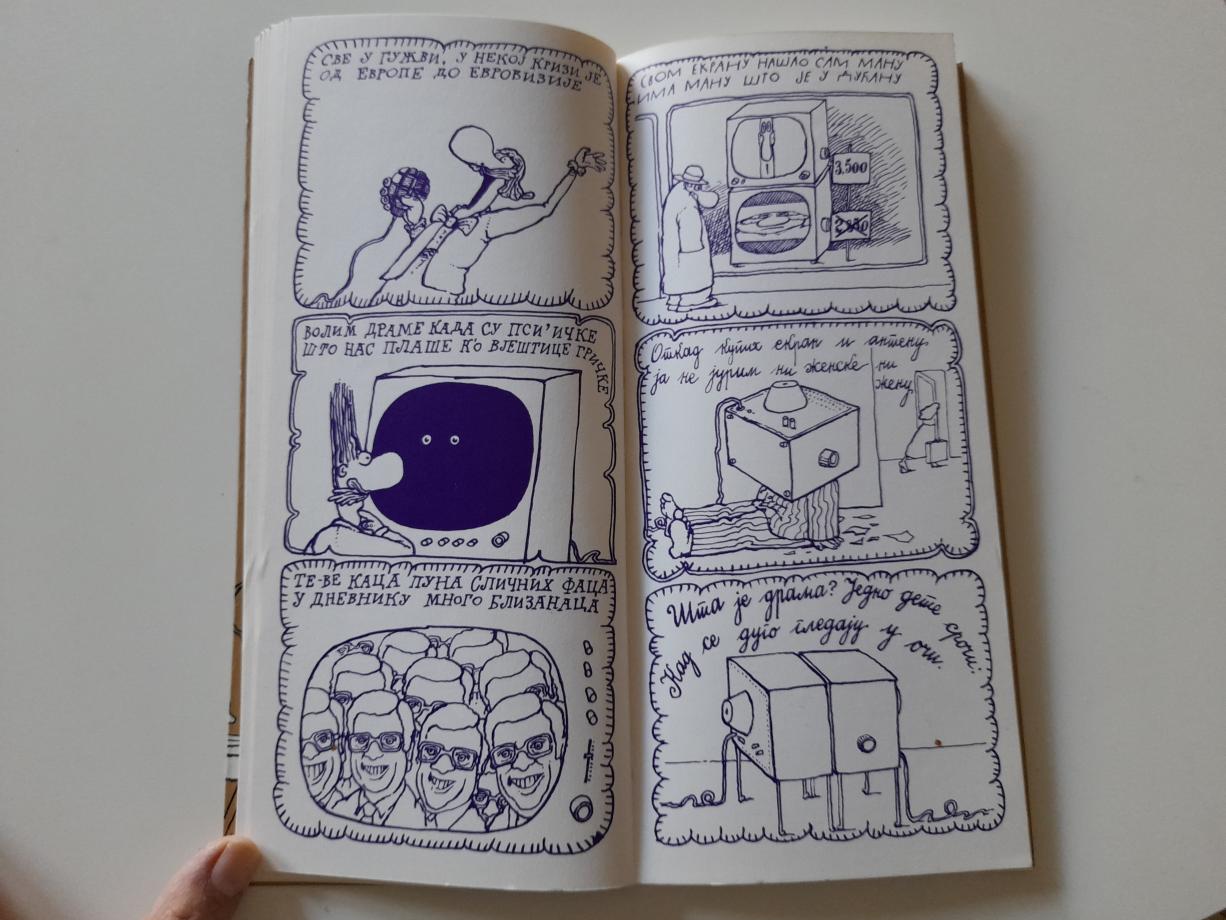 СВЕ У ГУЖВИ, У НЕКОЈ КРИЗИ ЈЕ
ОД ЕВРОПЕ ДО ЕВРОВИЗИЈЕ
ВОЛИМ ДРАМЕ КАДА СУ ПСИ'ИЧКЕ
ШТО НАС ПЛАШЕ К'О ВЈЕШТИЦЕ ГРИЧКЕ
ТЕ-ВЕ КАЦА ПУНА СЛИЧНИХ ФАЦА
У ДНЕВНИКУ МНОГО БЛИЗАНАЦА
СВОМ ЕКРАНУ НАШАО САМ МАНУ
ИМА МАНУ ШТО ЈЕ У ДУЋАНУ
3.500
Откад купих екран и антену
ја не јурим ни женске ни
жену
Шта је драма? Једно дете срочи:
Кад се дуго гледају у очи.